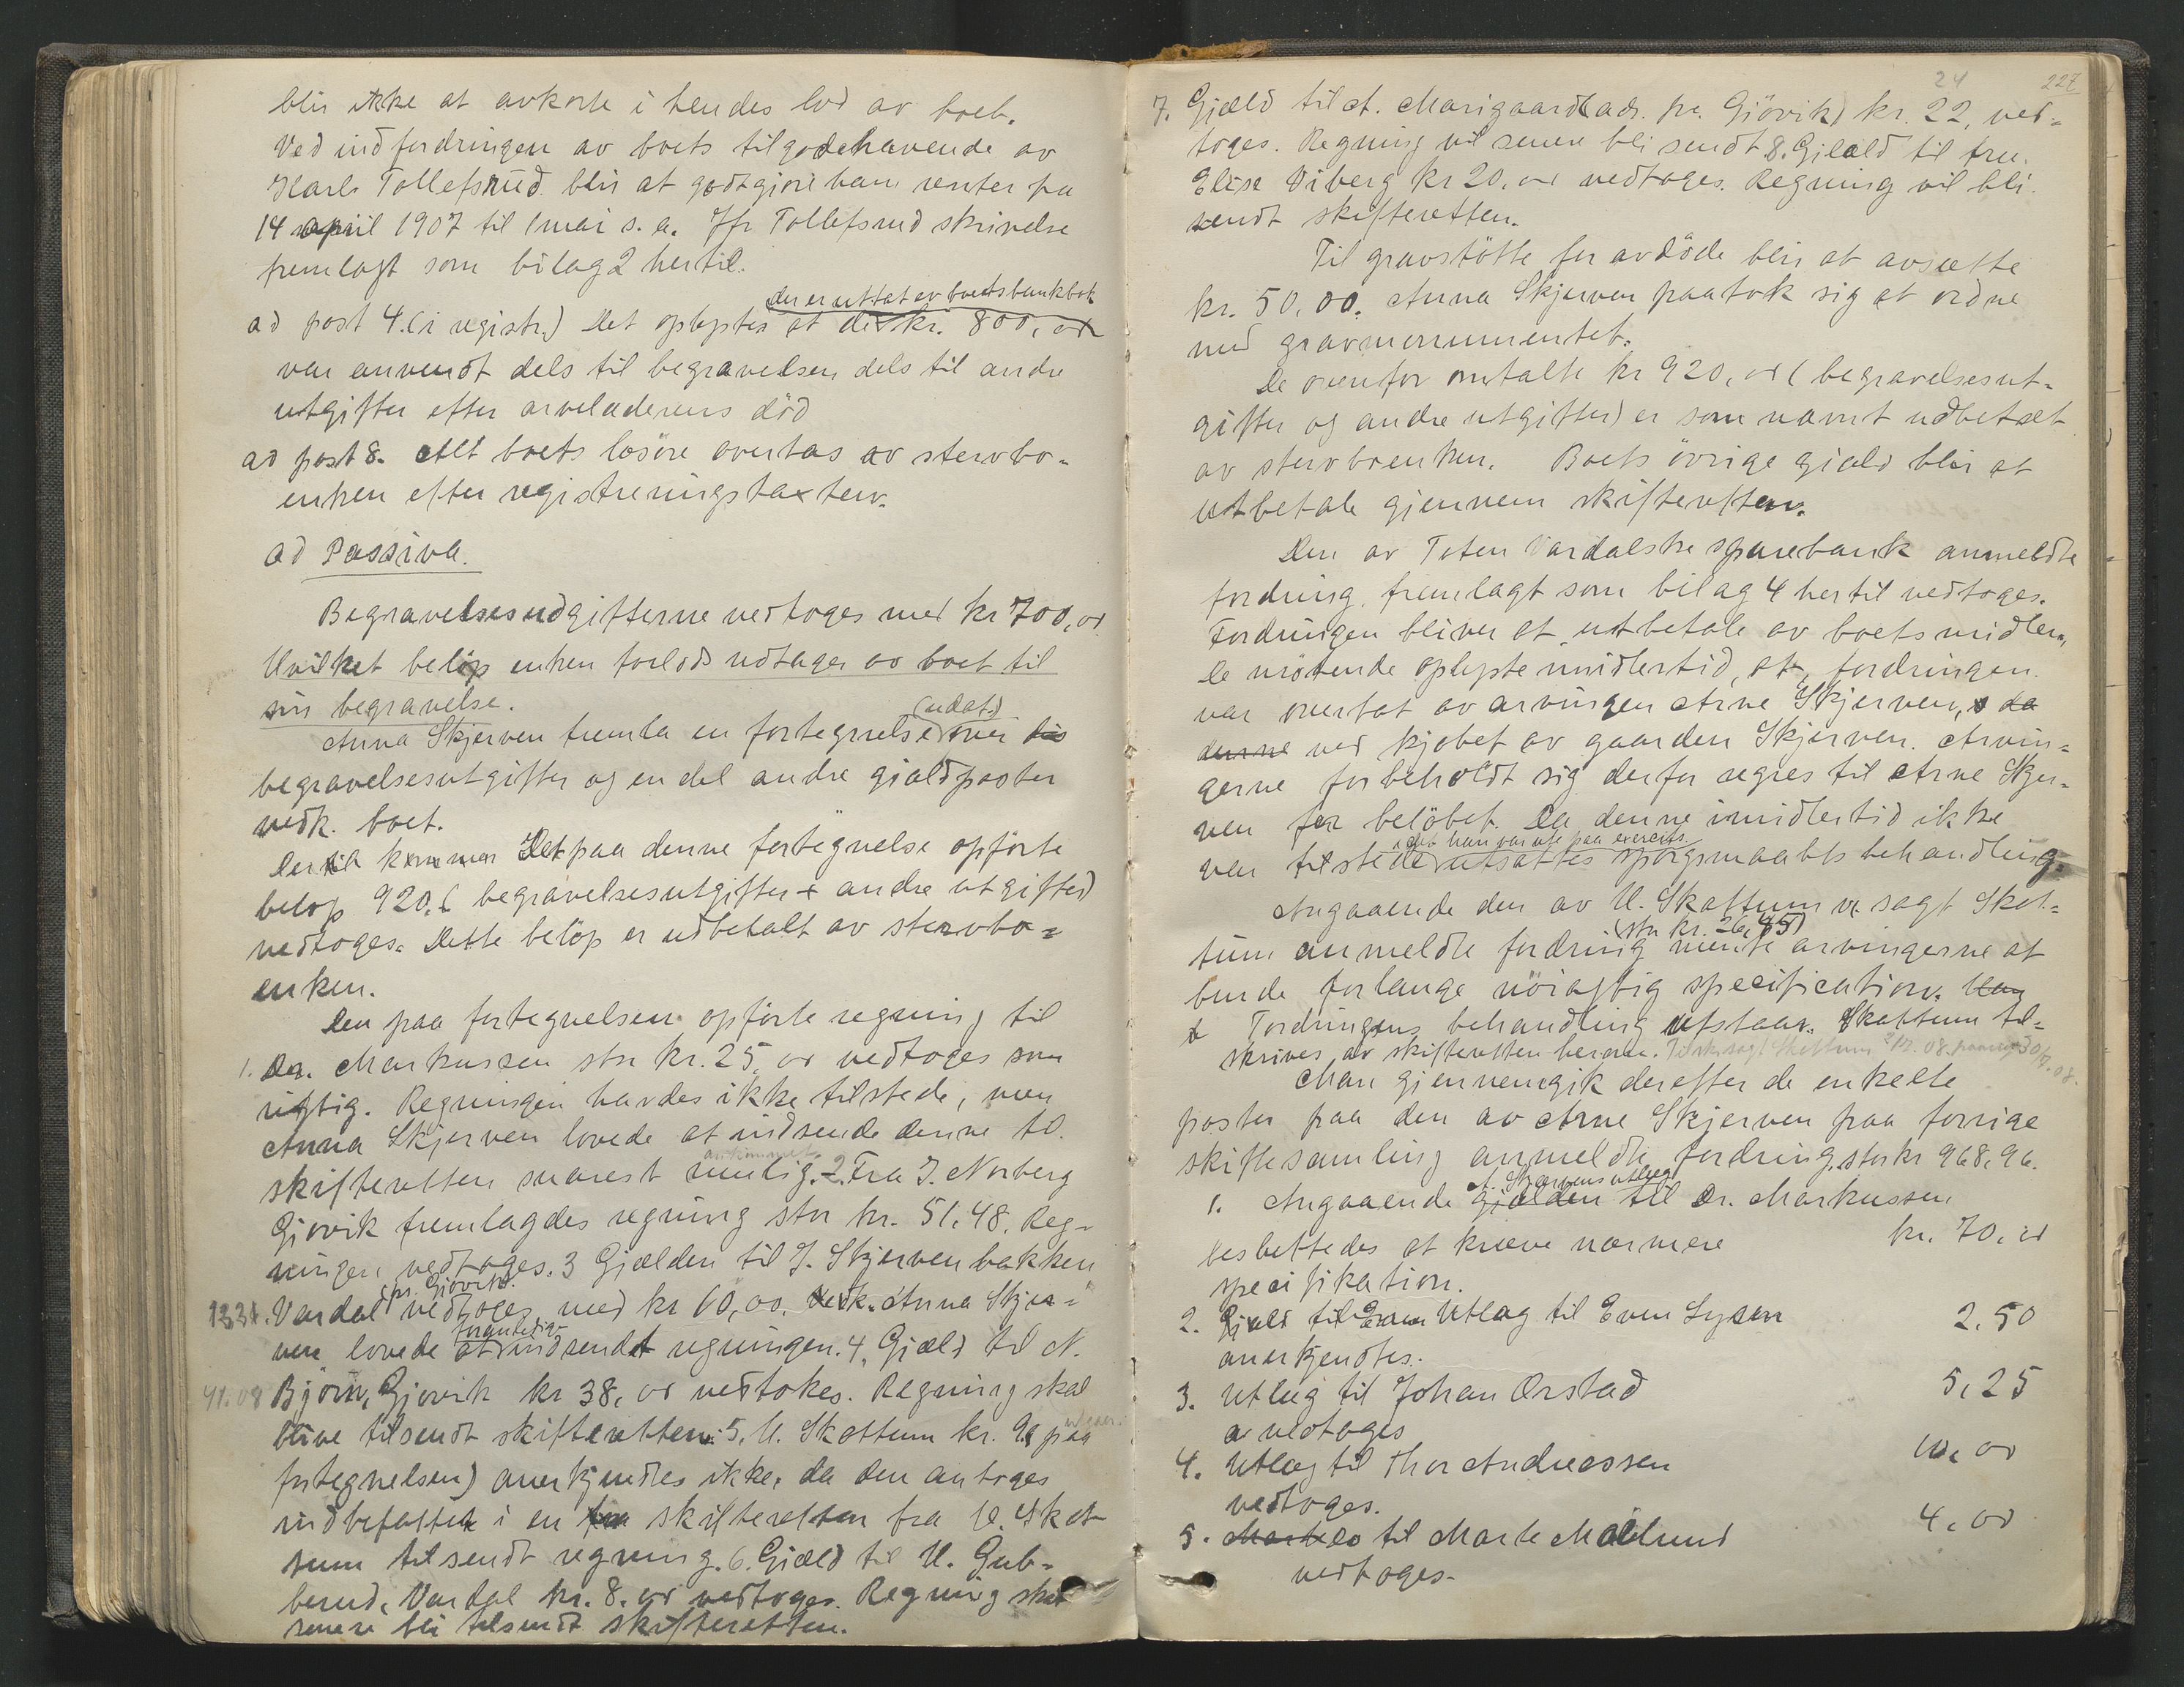 blir ikke at avkorte i hendes lod av boet.
Ved indfordringen av boets tilgodehavende av
Karls Tollefsrud blir at godtgjøre ham renter fra
14 april 1907 til 1 mai s. a. Jfr Tollefsrud skrivelse
fremlagt som bilag 2 hertil.
der er uttat av boets bankbok
ad post 4. (i registr.) Det oplystes at de kr. 800,00
var anvendt dels til begravelsen dels til andre
utgifter efter arveladerens död
ad post 8. Alt boets løsöre overtas av stervbo-
enken efter registreringstaxten.
ad Passiva.
Begravelsesudgifterne vedtoges med kr 700,00
Hvilket belöp enken forlods udtager av boet til
sin begravelse.
(udat.)
Anna Skjerven fremla en fortegnelse over
begravelsesutgifter og en del andre gjældposter
vedk. boet.
Det paa denne fortegnelse opförte
belöp 920. (begravelsesutgifter + andre utgifter)
vedtoges. Dette belöp er udbetalt av stervbo-
enken.
Den paa fortegnelsen opförte regning til
1. Dr. Markussen stor kr. 25,00 vedtoges som
rigtig. Regningen havdes ikke tilstede, men
Anna Skjerven lovede at indsende denne til
ankommet
skifteretten snarest mulig. 2. Fra J. Norberg
Gjövik fremlagdes regning stor kr. 51,48. Reg-
ningen vedtoges. 3 Gjælden til J. Skjervenbakken
pr. Gjövik
Vardal vedtoges med kr 60,00. Anna Skjer-
ven lovede at indsendt regningen. 4. Gjæld til N.
Björn, Gjövik kr 38,00 vedtokes. Regning skal
blive tilsendt skifteretten. 5. U. Skattum kr. 9 paa
fortegnelsen) anerkjendtes ikke, da den antoges
indbefattet i en skifteretten fra U. Skat-
tum tilsendt regning. 6. Gjæld til U. Gub-
berud, Vardal kr. 8,00 vedtoges. Regning skal
senere bli tilsendt skifteretten.
24 227
7. Gjæld til A. Marigaard (adr. pr. Gjövik) kr. 22, ved-
toges. Regning vil senere bli sendt 8. Gjeald til fru
Elise Viberg kr 20,00 vedtoges. Regning vil bli
sendt skifteretten.
Til gravstötte for avdöde blir at avsætte
kr. 50,00. Anna Skjerven paatok sig at ordne
med gravmonumentet.
De ovenfor omtalte kr 920,00 (begravelsesut-
gifter og andre utgifter) er som nævnt udbetalt
av stervboenken. Boets övrige gjæld blir at
utbetale gjennem skifteretten.
Den av Toten Vardalske sparebank anmeldte
fordring, fremlagt som bilag 4 hertil vedtoges.
Fordringen bliver at utbetale av boets midler.
De mötende oplyste imidlertid, at fordringen
var overtat av arvingen Arne Skjerven, da
denne ved kjöbet av gaarden Skjerven. Arvin-
gerne forbeholdt sig derfor regres til Arne Skjer-
ven for belöbet. Da denne imidlertid ikke
idet han var ute paa exercits
var tilstede utsattes spörgsmaalets behandling.
Angaaende den av U. Skattum v. sagf. Skat-
(stor kr. 26,45)
tum anmeldte fordring mente arvingerne at
burde forlange nöiagtig specification.
Fordringens behandling utstaar. Skattum til-
skrives av skifteretten herom.
Man gjennemgik derefter de enkelte
poster paa den av Arne Skjerven paa forrige
skiftesamling anmeldte fordring, stor kr 968,96.
A. Skjervens utlæg
1. Angaaende gjælden til Dr. Markussen
besluttedes at kræve nærmere kr. 70,00
specifikation.
2. Gjæld til Utlag til Even Lysen 2.50
anerkjendtes.
3. Utlæg til Johan Örstad 5,25
vedtoges
4. Utlæg til Thor Andreassen 10,00
vedtoges.
5. do til Marte Mælund 4,00
vedtoges.